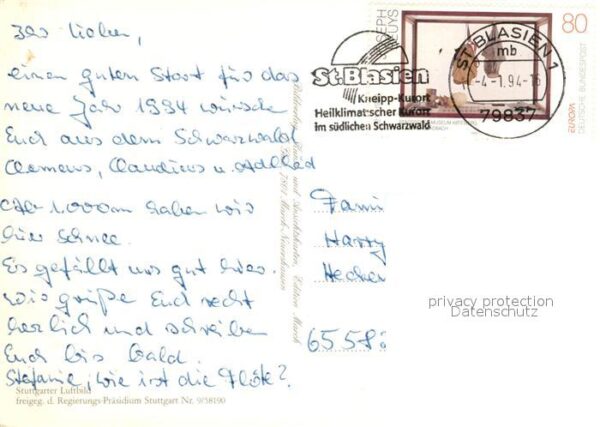 Ihr Lieben,
einen guten Start für das
neue Jahr 1994 wünsche
Euch aus dem Schwarzwald
Clemens, Claudius u.
Ab 1.000m haben wir
hier Schnee.
Es gefällt uns gut hier.
Wir grüße Euch recht
herzlich und schreiben
Euch bis bald.
Stefanie, wie ist die Flöte?
Stuttgarter Luftbild
freigeg. d. Regierungs-Präsidium Stuttgart Nr. 9/58190
und Ansichtskarten Edition Maurk
JOSEPH BEUYS
80
EUROPA
DEUTSCHE BUNDESPOST
St. Blasien
Kneipp-Kurort
Heilklimatischer Kurort
im südlichen Schwarzwald
ST. BLASIEN 1
mb
-4-1.94-16
79837
Fami
Harry
Hecker
6558
privacy protection
Datenschutz